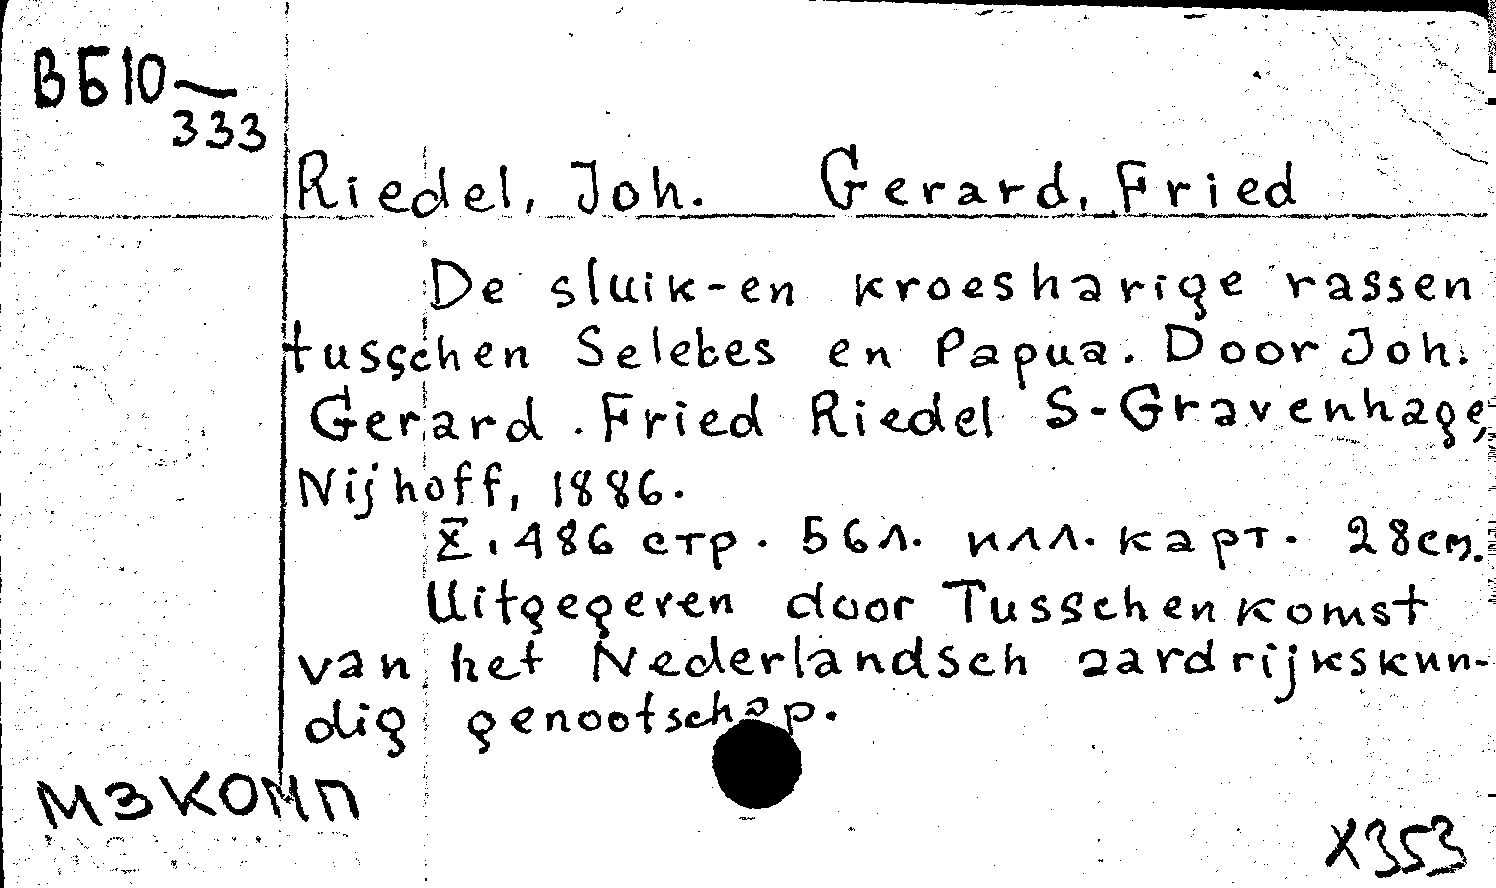 ВБ10—
333
Riedel, Joh. Gerard, Fried
De sluik-en kroesharige rassen
tusschen Selebes en Papua. Door Joh.
Gerard. Fried Riedel S-Gravenhage,
Nijhoff, 1886.
X, 486 стр. 56л. илл. карт. 28см.
Uitgegeren door Tusschenkomst
van het Nederlandsch aardrijkskun-
dig genootschap.
МЗКОМП
X353